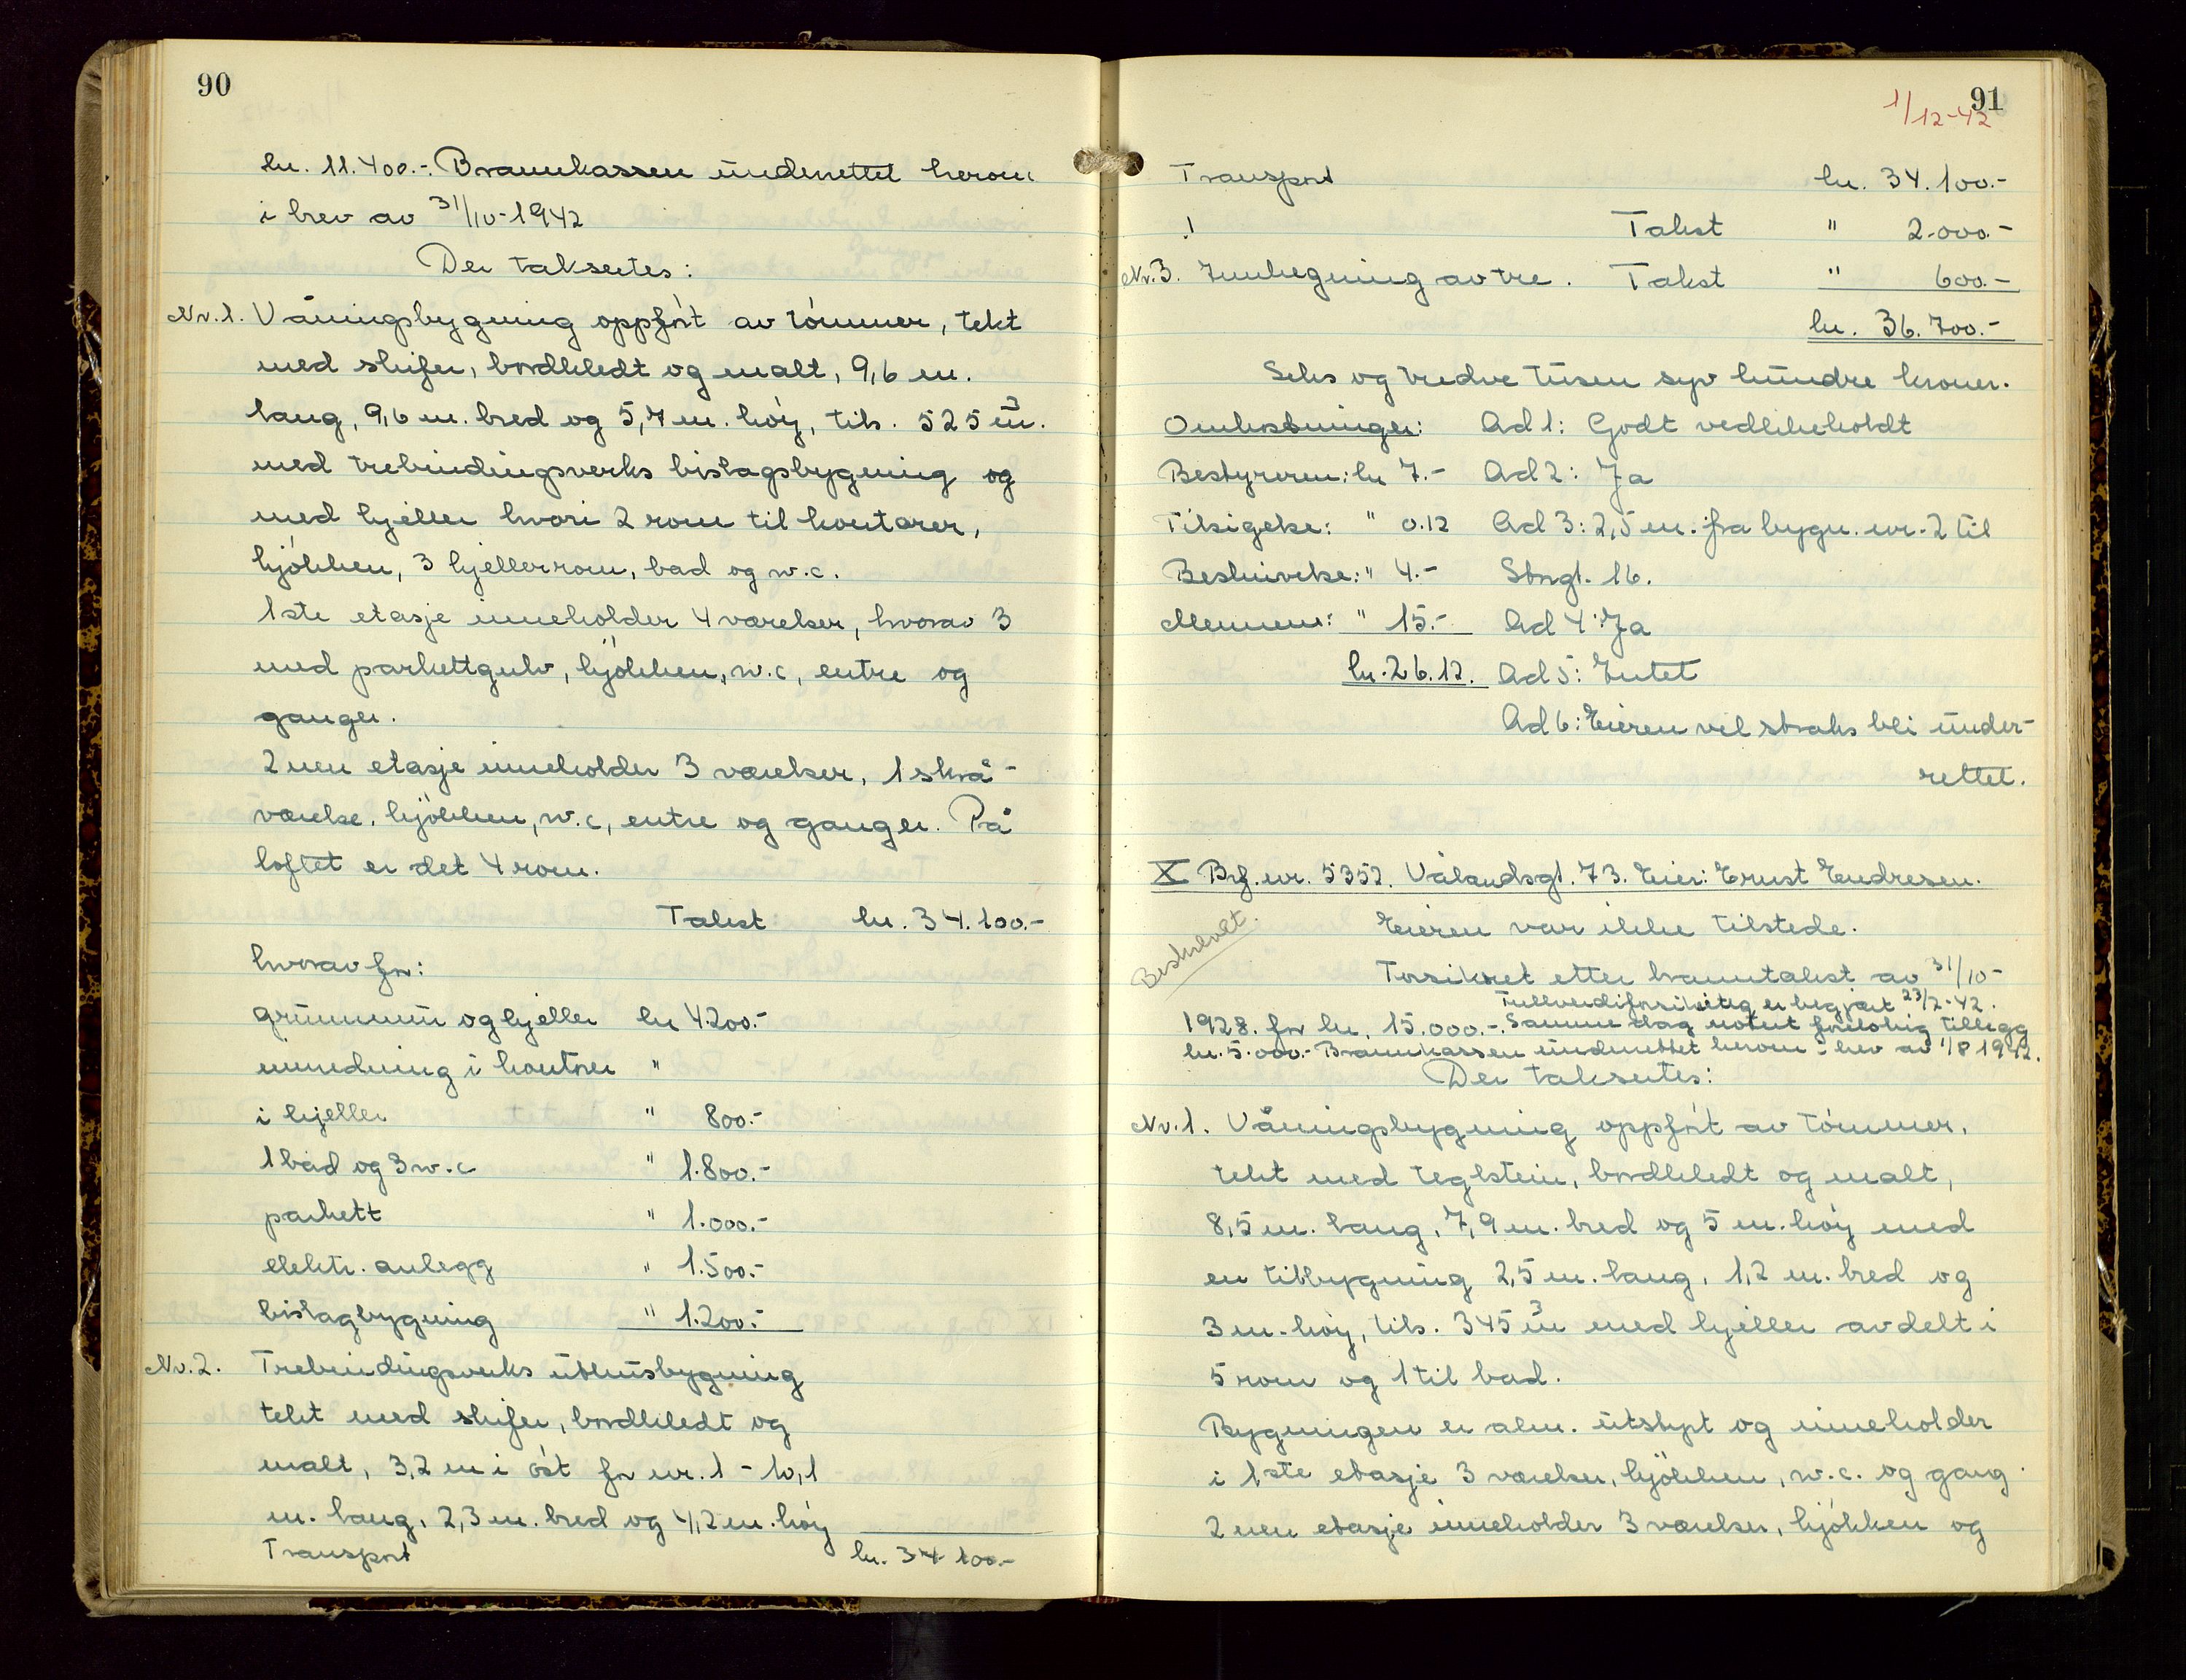 90
kr. 11.400.-. Brannkassen underrettet herom
i brev av 31/10-1942
Der taksertes:
Nr. 1. Våningsbygning oppført av tømmer, tekt
med skifer, bordkledt og malt, 9,6 m.
lang, 9,6 m. bred og 5,7 m. høy, tils. 525 m³.
med trebindingsverks bislagsbygning og
med kjeller hvori 2 rom til kontorer,
kjøkken, 3 kjellerrom, bad og w.c.
1ste etasje inneholder 4 værelser, hvorav 3
med parkettgulv, kjøkken, w.c, entre og
ganger.
2nen etasje inneholder 3 værelser, 1 skrå-
værelse, kjøkken, w.c, entre og ganger. På
loftet er det 4 rom.
Takst kr. 34.100.-
hvorav for:
grunnmur og kjeller kr 4200.-
innredning i kontorer "
i kjeller " 800.-
1 bad og 3 w.c " 1.800.-
parkett " 1.000.-
elektr. anlegg " 1.500.-
bislagbygning " 1.200.-
Nr. 2. Trebindingsverks uthusbygning
tekt med skifer, bordkledt og
malt, 3,2 m i øst for nr. 1 - 10,1
m. lang, 2,3 m. bred og 4,2 m. høy
Transport kr. 34 100.-
91
1/12-42
Transport kr. 34.100.-
Takst " 2.000.-
Nr. 3. Innhegning av tre. Takst " 600.-
kr. 36.700.-
Seks og tredve tusen syv hundre kroner.
Omkostninger: Ad 1: Godt vedlikeholdt
Bestyreren: kr 7.- Ad 2: Ja
Tilsigelse: " 0.12 Ad 3: 2,5 m. fra bygn. nr. 2 til
Beskrivelse: " 4.- Stngt. 16.
Mennene: " 15.- Ad 4: Ja
kr. 26.12. Ad 5: Intet
Ad 6: Eieren vil straks bli under-
rettet.
X Brf. nr. 5352. Vålandsgt. 73. Eier: Ernst Endresen.
Beskrevet.
Eieren var ikke tilstede.
Forsikret etter branntakst av 31/10-
Fullverdiforsikring er begjært 23/2-42.
1928. for kr. 15.000.-. Samme dag notert foreløbig tillegg
kr. 5.000.- Brannkassen underrettet herom i brev av 1/8 1942.
Der taksertes:
Nr. 1. Våningsbygning oppført av tømmer,
tekt med teglstein, bordkledt og malt,
8,5 m. lang, 7,9 m. bred og 5 m. høy med
en tilbygning 2,5 m. lang, 1,2 m. bred og
3 m. høy, tils. 345 m³ med kjeller avdelt i
5 rom og 1 til bad.
Bygningen er alm. utstyrt og inneholder
i 1ste etasje 3 værelser, kjøkken, w.c. og gang.
2nen etasje inneholder 3 værelser, kjøkken og